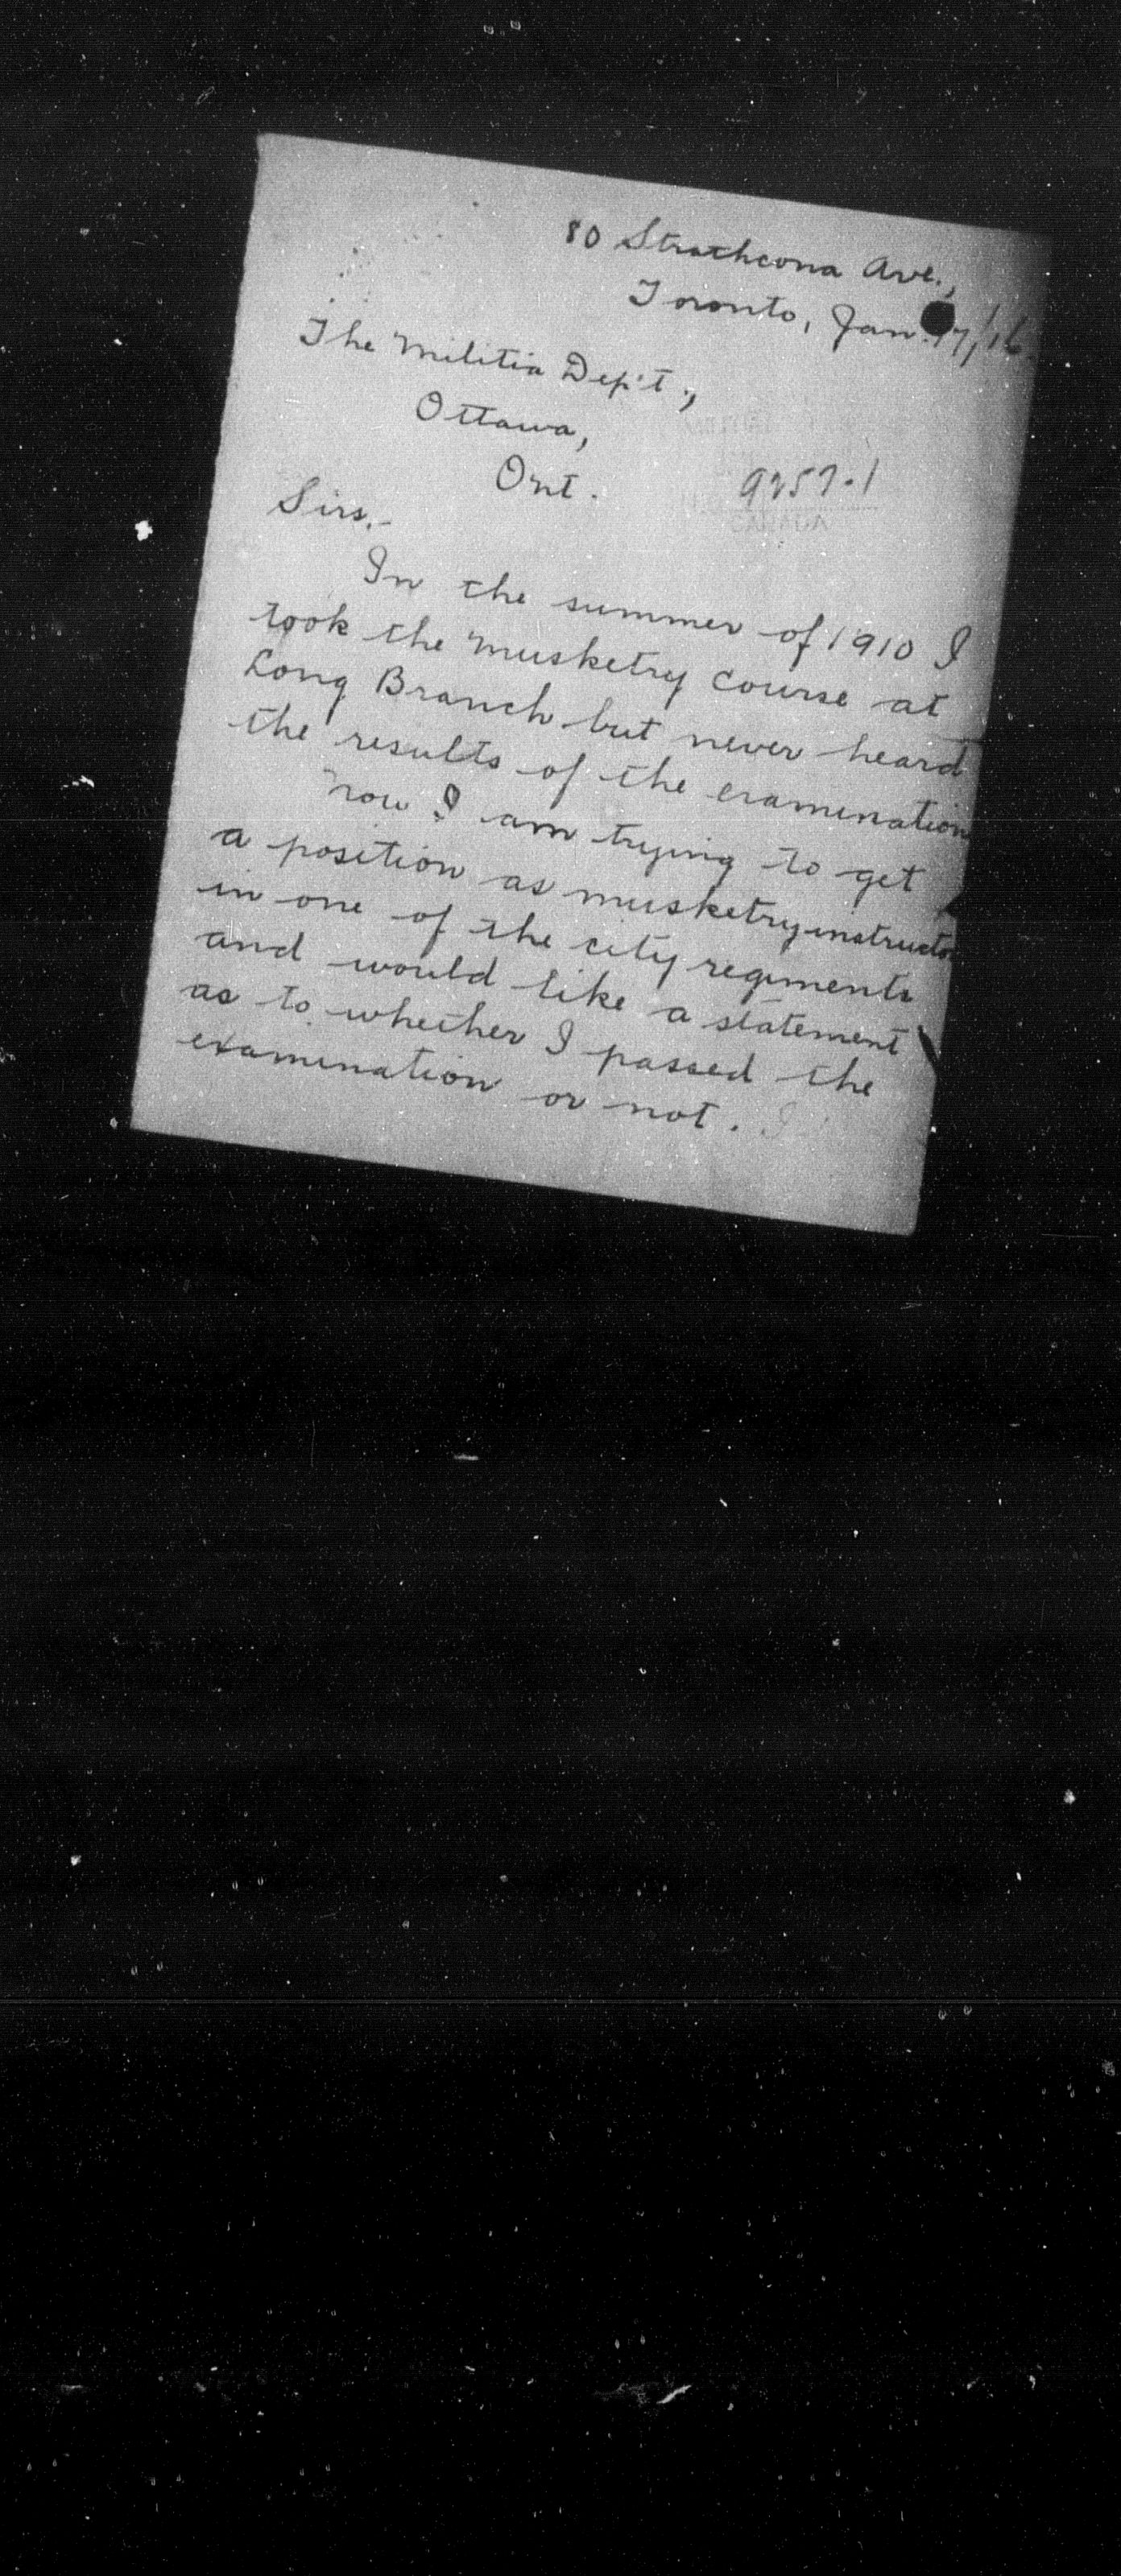 80 Strathcona Ave.,
Toronto, Jan. 17/16.
The Militia Dep't.,
Ottawa,
Ont.
9257-1
CANADA
Sirs,-
In the summer of 1910 I
took the Musketry Course at
Long Branch but never heard
the results of the examination
Now I am trying to get
a position as musketry instructor
in one of the city regiments
and would like a statement
as to whether I passed the
examination or not.